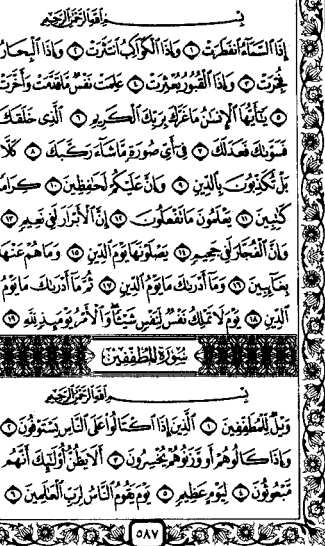 بِسْمِ اللَّهِ الرَّحْمَٰنِ الرَّحِيمِ
إِذَا السَّمَاءُ انْفَطَرَتْ ١ وَإِذَا الْكَوَاكِبُ انْتَثَرَتْ ٢ وَإِذَا الْبِحَارُ
فُجِّرَتْ ٣ وَإِذَا الْقُبُورُ بُعْثِرَتْ ٤ عَلِمَتْ نَفْسٌ مَا قَدَّمَتْ وَأَخَّرَتْ
٥ يَا أَيُّهَا الْإِنْسَانُ مَا غَرَّكَ بِرَبِّكَ الْكَرِيمِ ٦ الَّذِي خَلَقَكَ
فَسَوَّاكَ فَعَدَلَكَ ٧ فِي أَيِّ صُورَةٍ مَا شَاءَ رَكَّبَكَ ٨ كَلَّا
بَلْ تُكَذِّبُونَ بِالدِّينِ ٩ وَإِنَّ عَلَيْكُمْ لَحَافِظِينَ ١٠ كِرَامًا
كَاتِبِينَ ١١ يَعْلَمُونَ مَا تَفْعَلُونَ ١٢ إِنَّ الْأَبْرَارَ لَفِي نَعِيمٍ ١٣
وَإِنَّ الْفُجَّارَ لَفِي جَحِيمٍ ١٤ يَصْلَوْنَهَا يَوْمَ الدِّينِ ١٥ وَمَا هُمْ عَنْهَا
بِغَائِبِينَ ١٦ وَمَا أَدْرَاكَ مَا يَوْمُ الدِّينِ ١٧ ثُمَّ مَا أَدْرَاكَ مَا يَوْمُ
الدِّينِ ١٨ يَوْمَ لَا تَمْلِكُ نَفْسٌ لِنَفْسٍ شَيْئًا وَالْأَمْرُ يَوْمَئِذٍ لِلَّهِ ١٩
سُورَةُ الْمُطَفِّفِينَ
بِسْمِ اللَّهِ الرَّحْمَٰنِ الرَّحِيمِ
وَيْلٌ لِلْمُطَفِّفِينَ ١ الَّذِينَ إِذَا اكْتَالُوا عَلَى النَّاسِ يَسْتَوْفُونَ ٢
وَإِذَا كَالُوهُمْ أَوْ وَزَنُوهُمْ يُخْسِرُونَ ٣ أَلَا يَظُنُّ أُولَٰئِكَ أَنَّهُمْ
مَبْعُوثُونَ ٤ لِيَوْمٍ عَظِيمٍ ٥ يَوْمَ يَقُومُ النَّاسُ لِرَبِّ الْعَالَمِينَ ٦
٥٨٧